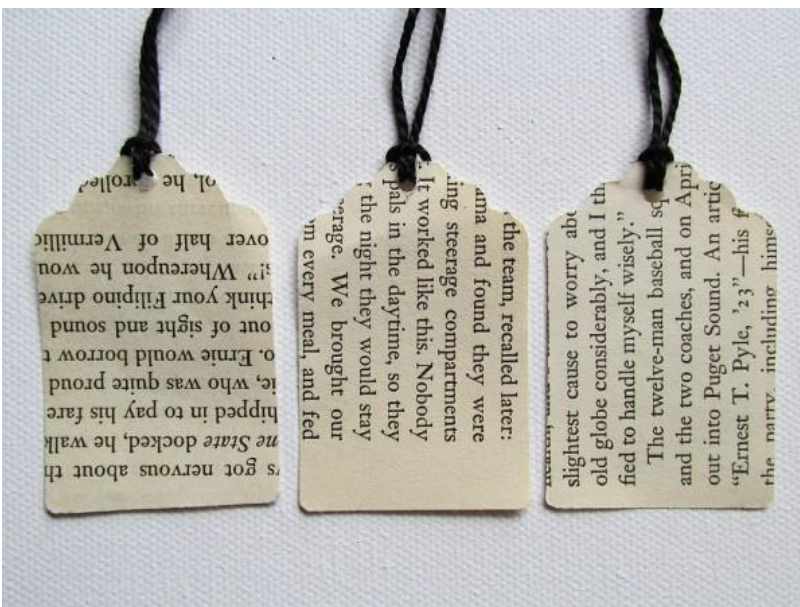 got nervous about th
State docked, he walk
hipped in to pay his fare
ie, who was quite proud
o. Ernie would borrow t
out of sight and sound
think your Filipino drive
!” Whereupon he wou
over half of Vermilli
ol, he rolled
the team, recalled later:
ama and found they were
ing steerage compartments
It worked like this. Nobody
pals in the daytime, so they
the night they would stay
erage. We brought our
m every meal, and fed
slightest cause to worry abo
old globe considerably, and I th
fied to handle myself wisely.”
The twelve-man baseball sq
and the two coaches, and on Apri
out into Puget Sound. An artic
“Ernest T. Pyle, ’23”—his f
the party, including himse